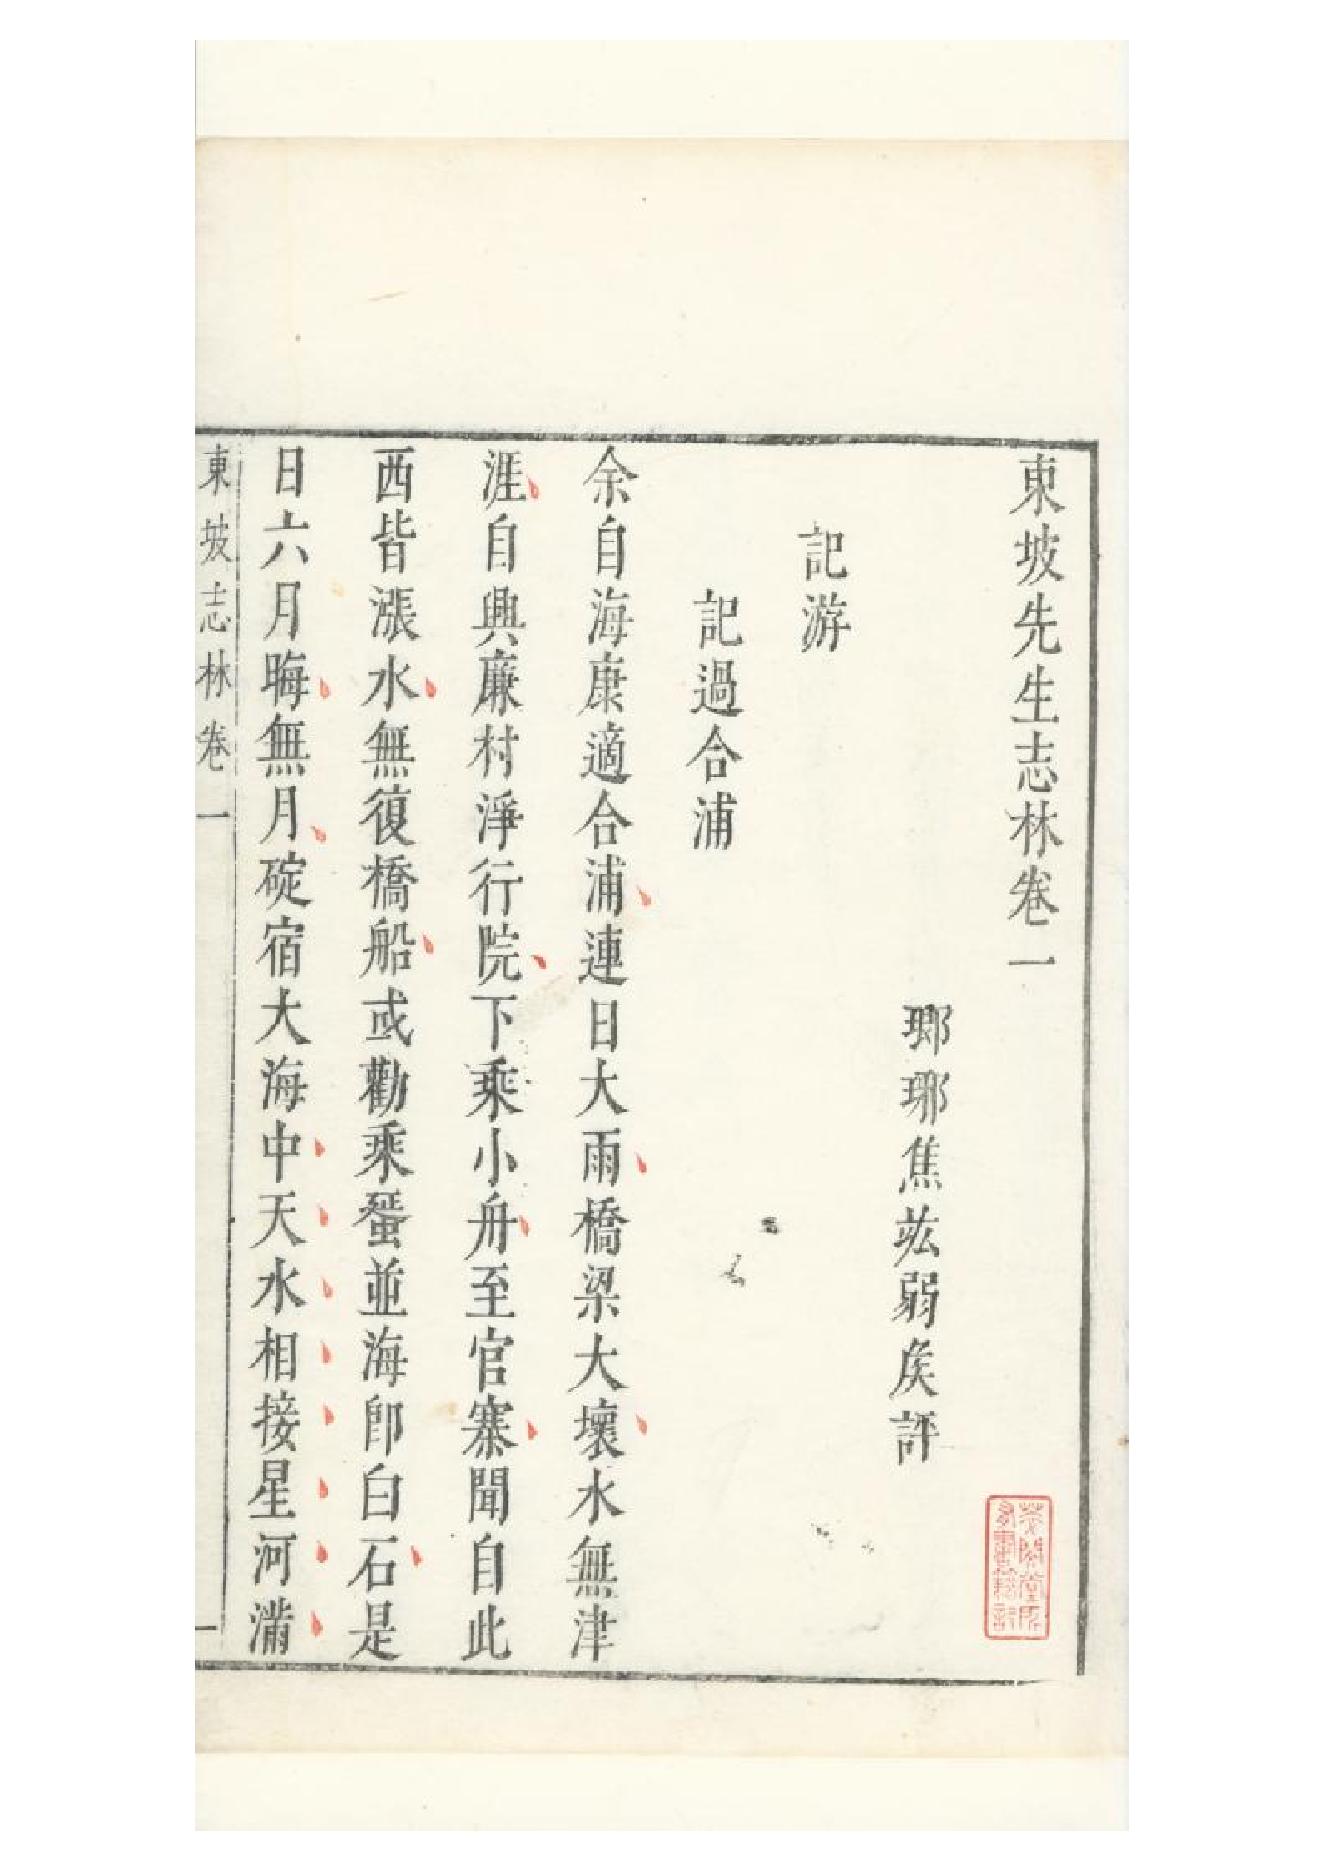 東坡先生志林卷一
瑯琊焦竑弱矦評
記游
記過合浦
余自海康適合浦連日大雨橋梁大壞水無津
涯自興廉村淨行院下乘小舟至官寨聞自此
西皆漲水無復橋船或勸乘蜑並海卽白石是
日六月晦無月碇宿大海中天水相接星河滿
東坡志林卷一
一